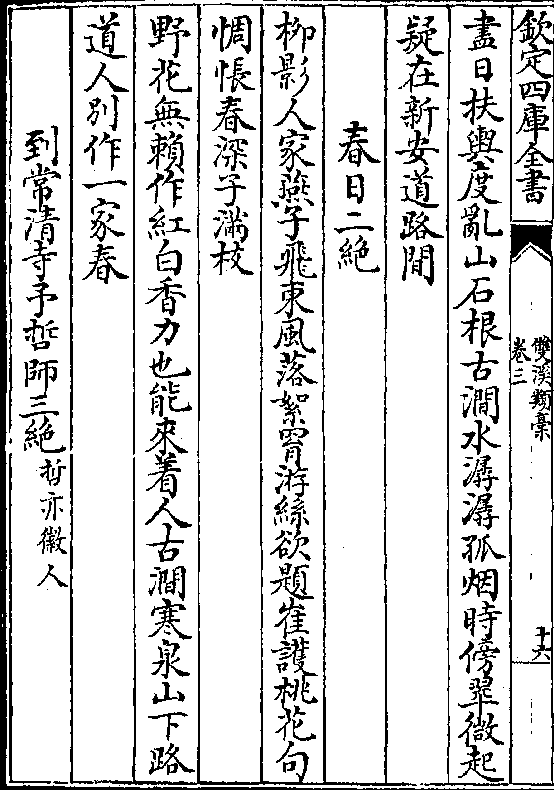 欽定四庫全書
雙溪類稾
卷三
十六
盡日扶輿度亂山石根古澗水潺潺孤烟時傍翠微起
疑在新安道路間
春日二絶
柳影人家燕子飛東風落絮罥游絲欲題崔護桃花句
惆悵春深子滿枝
野花無賴作紅白香力也能來着人古澗寒泉山下路
道人別作一家春
到常清寺予哲師三絶哲亦徽人